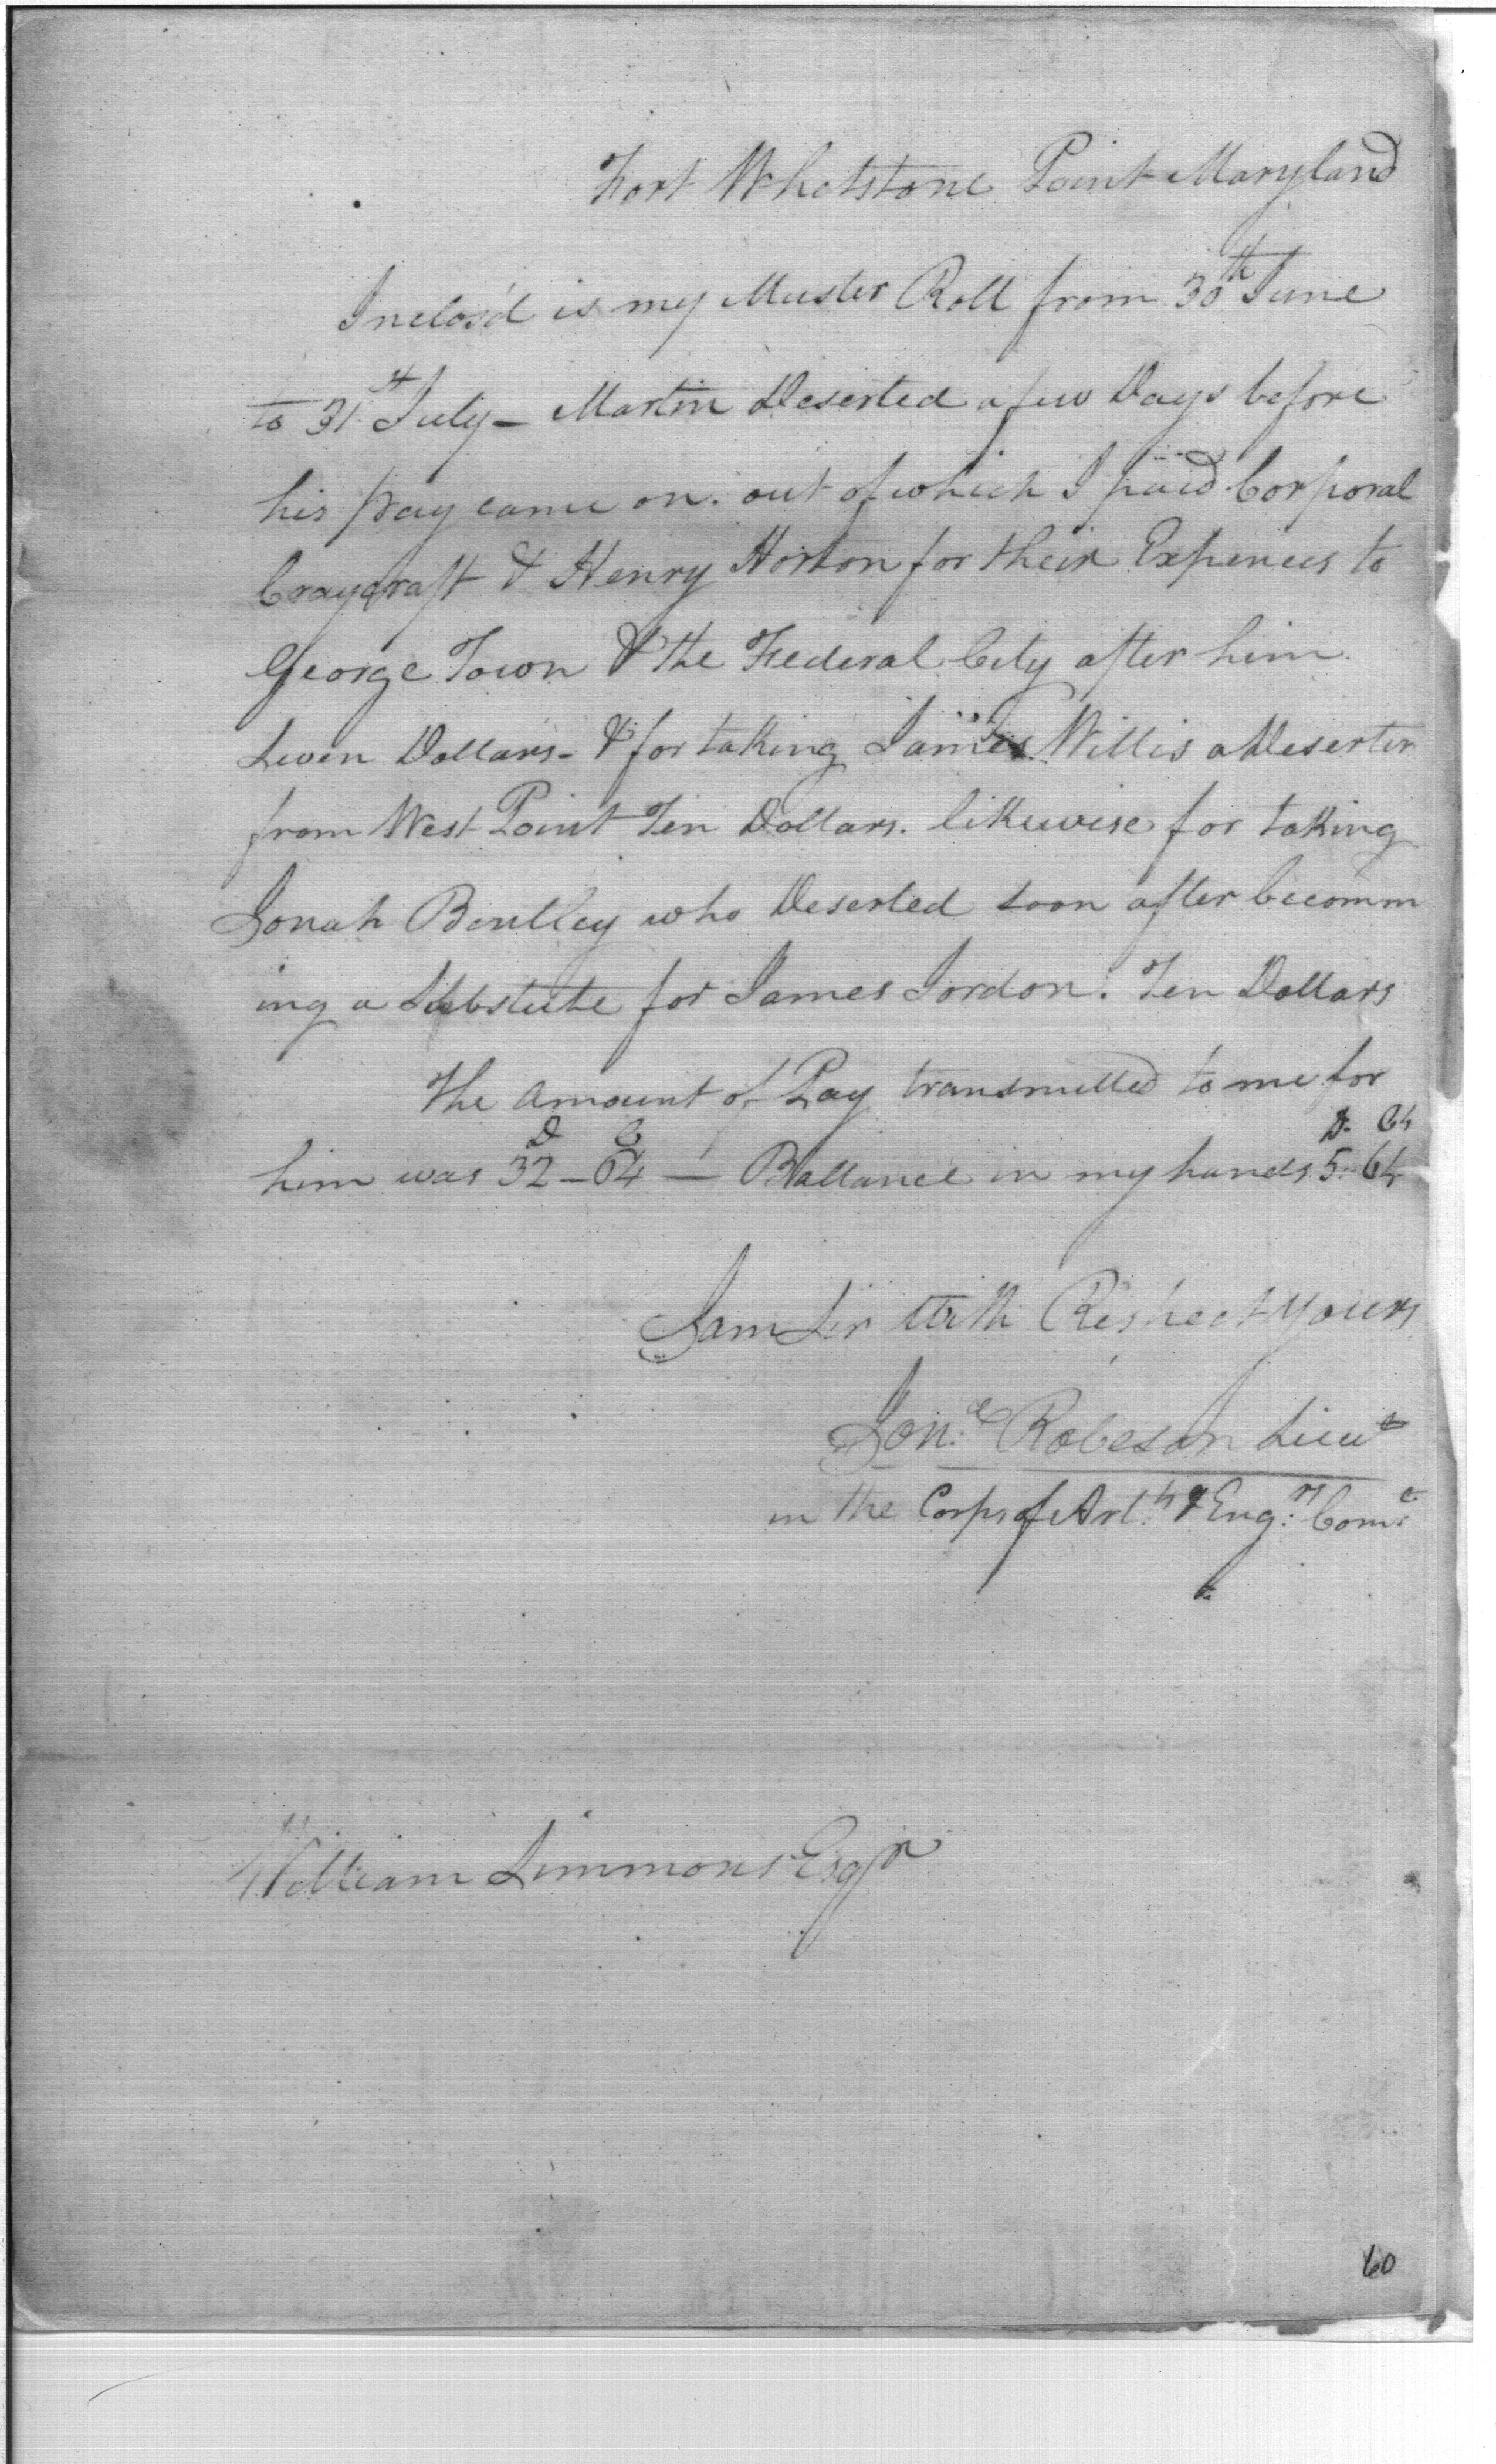 Fort Whetstone Point Maryland
Inclos'd is my Muster Roll from 30th June
to 31st July - Martin Deserted a few Days before
his pay came on. out of which I paid Corporal
Craycraft & Henry Horton for their Expences to
George Town & the Federal City after him.
Seven Dollars - & for taking James Willis a Deserter
from West Point Ten Dollars. likewise for taking
Jonah Bentley who Deserted soon after becomm
ing a Substute for James Jordon. Ten Dollars
The amount of Pay transmitted to me for
D C D. Cts
him was 32 - 64 — Ballance in my hands 5. 64
I am Sir with Respect Yours
Jon. Robeson Lieut
in the Corps of Art. & Eng.rs Com.
William Simmons Esqr
60